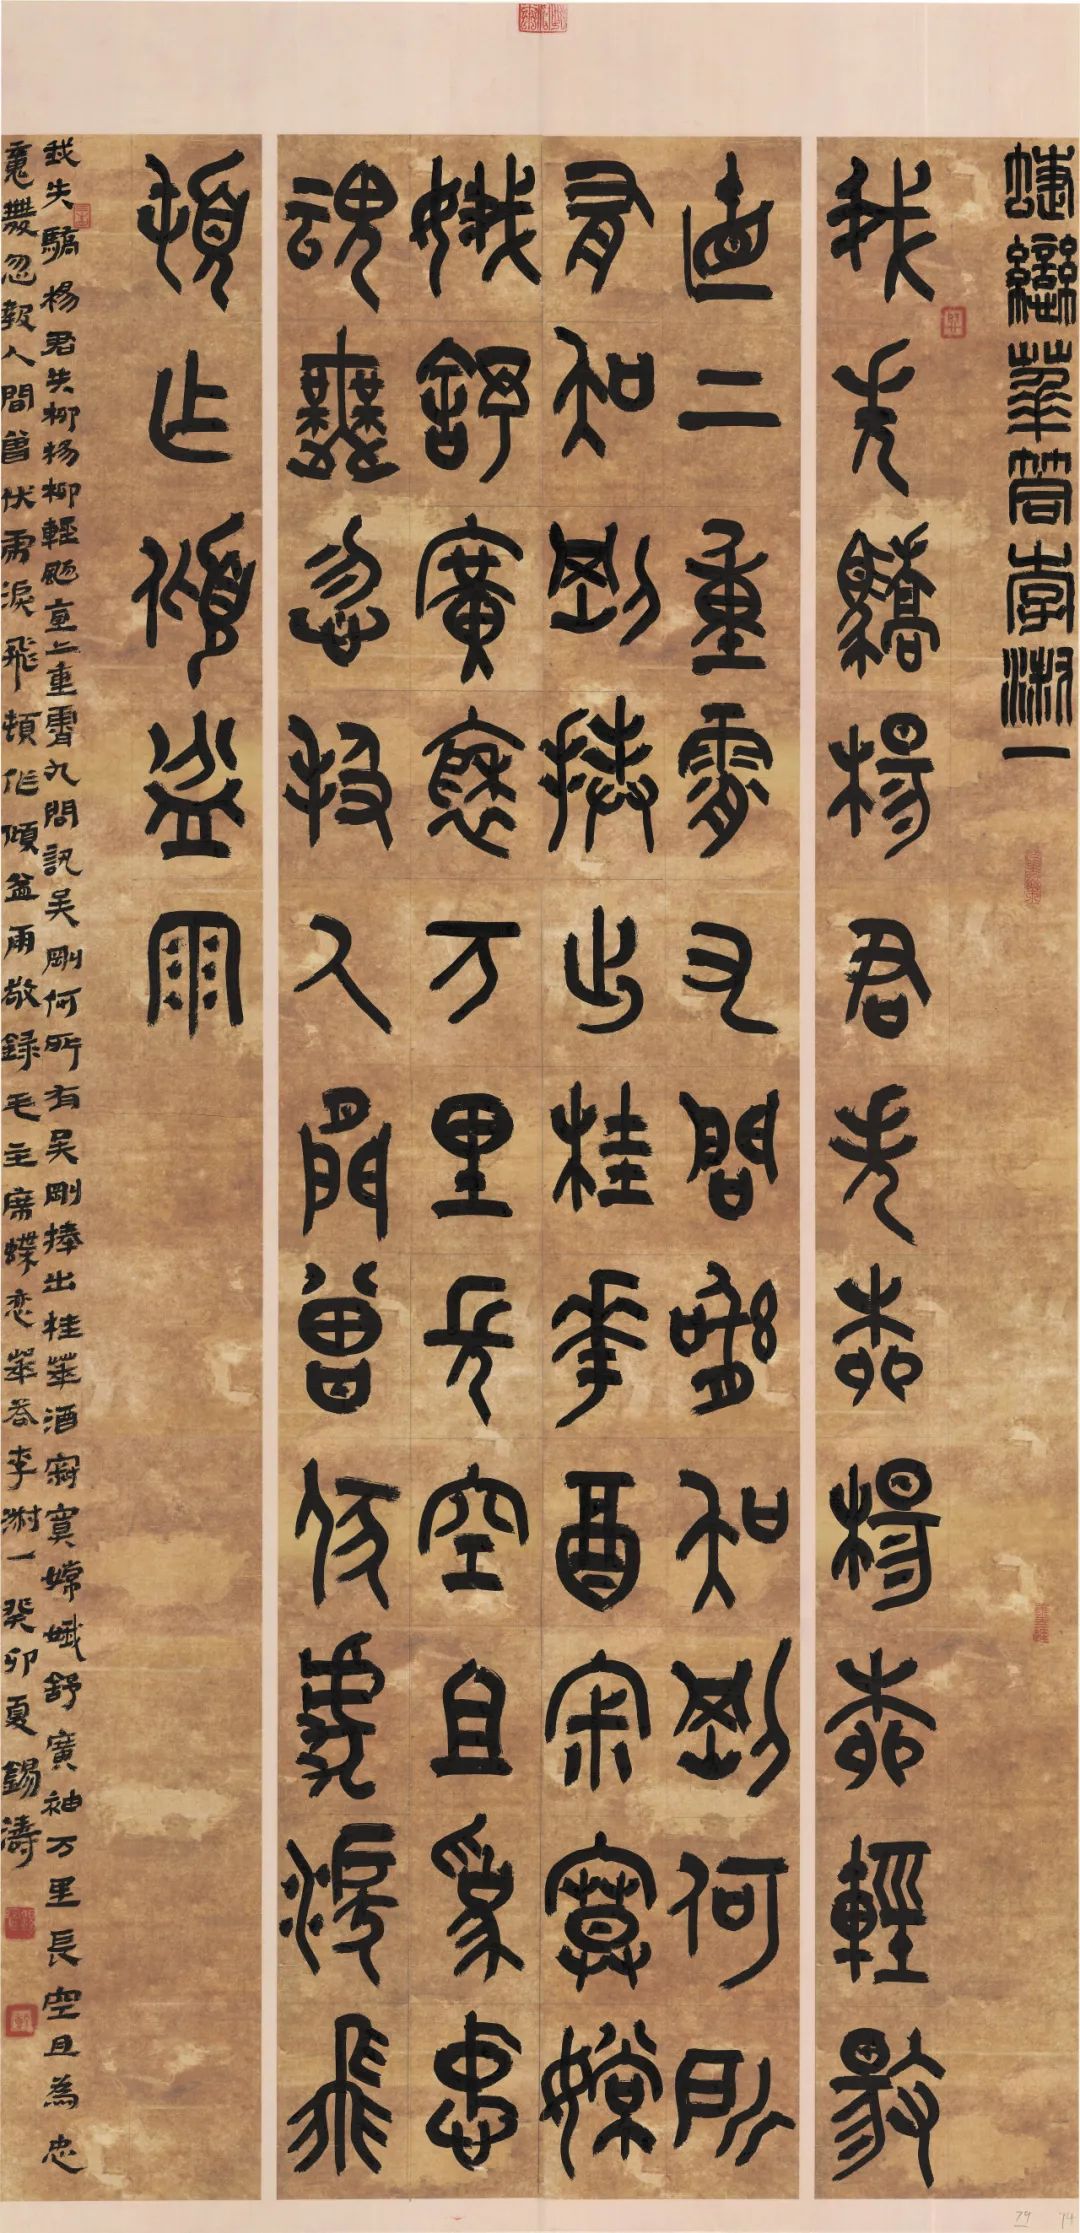 蜨戀華答李淑一
我失驕楊君失柳楊柳輕颺
直上重霄九問訊吳剛何所
有吳剛捧出桂華酒寂寞嫦
娥舒廣袖万里長空且為忠
魂舞忽報人間曾伏虎淚飛
頓作傾盆雨
我失驕楊君失柳楊柳輕颺直上重霄九問訊吳剛何所有吳剛捧出桂華酒寂寞嫦娥舒廣袖万里長空且為忠
魂舞忽報人間曾伏虎淚飛頓作傾盆雨敬錄毛主席蝶恋華荅李淑一癸卯夏錫濤
79